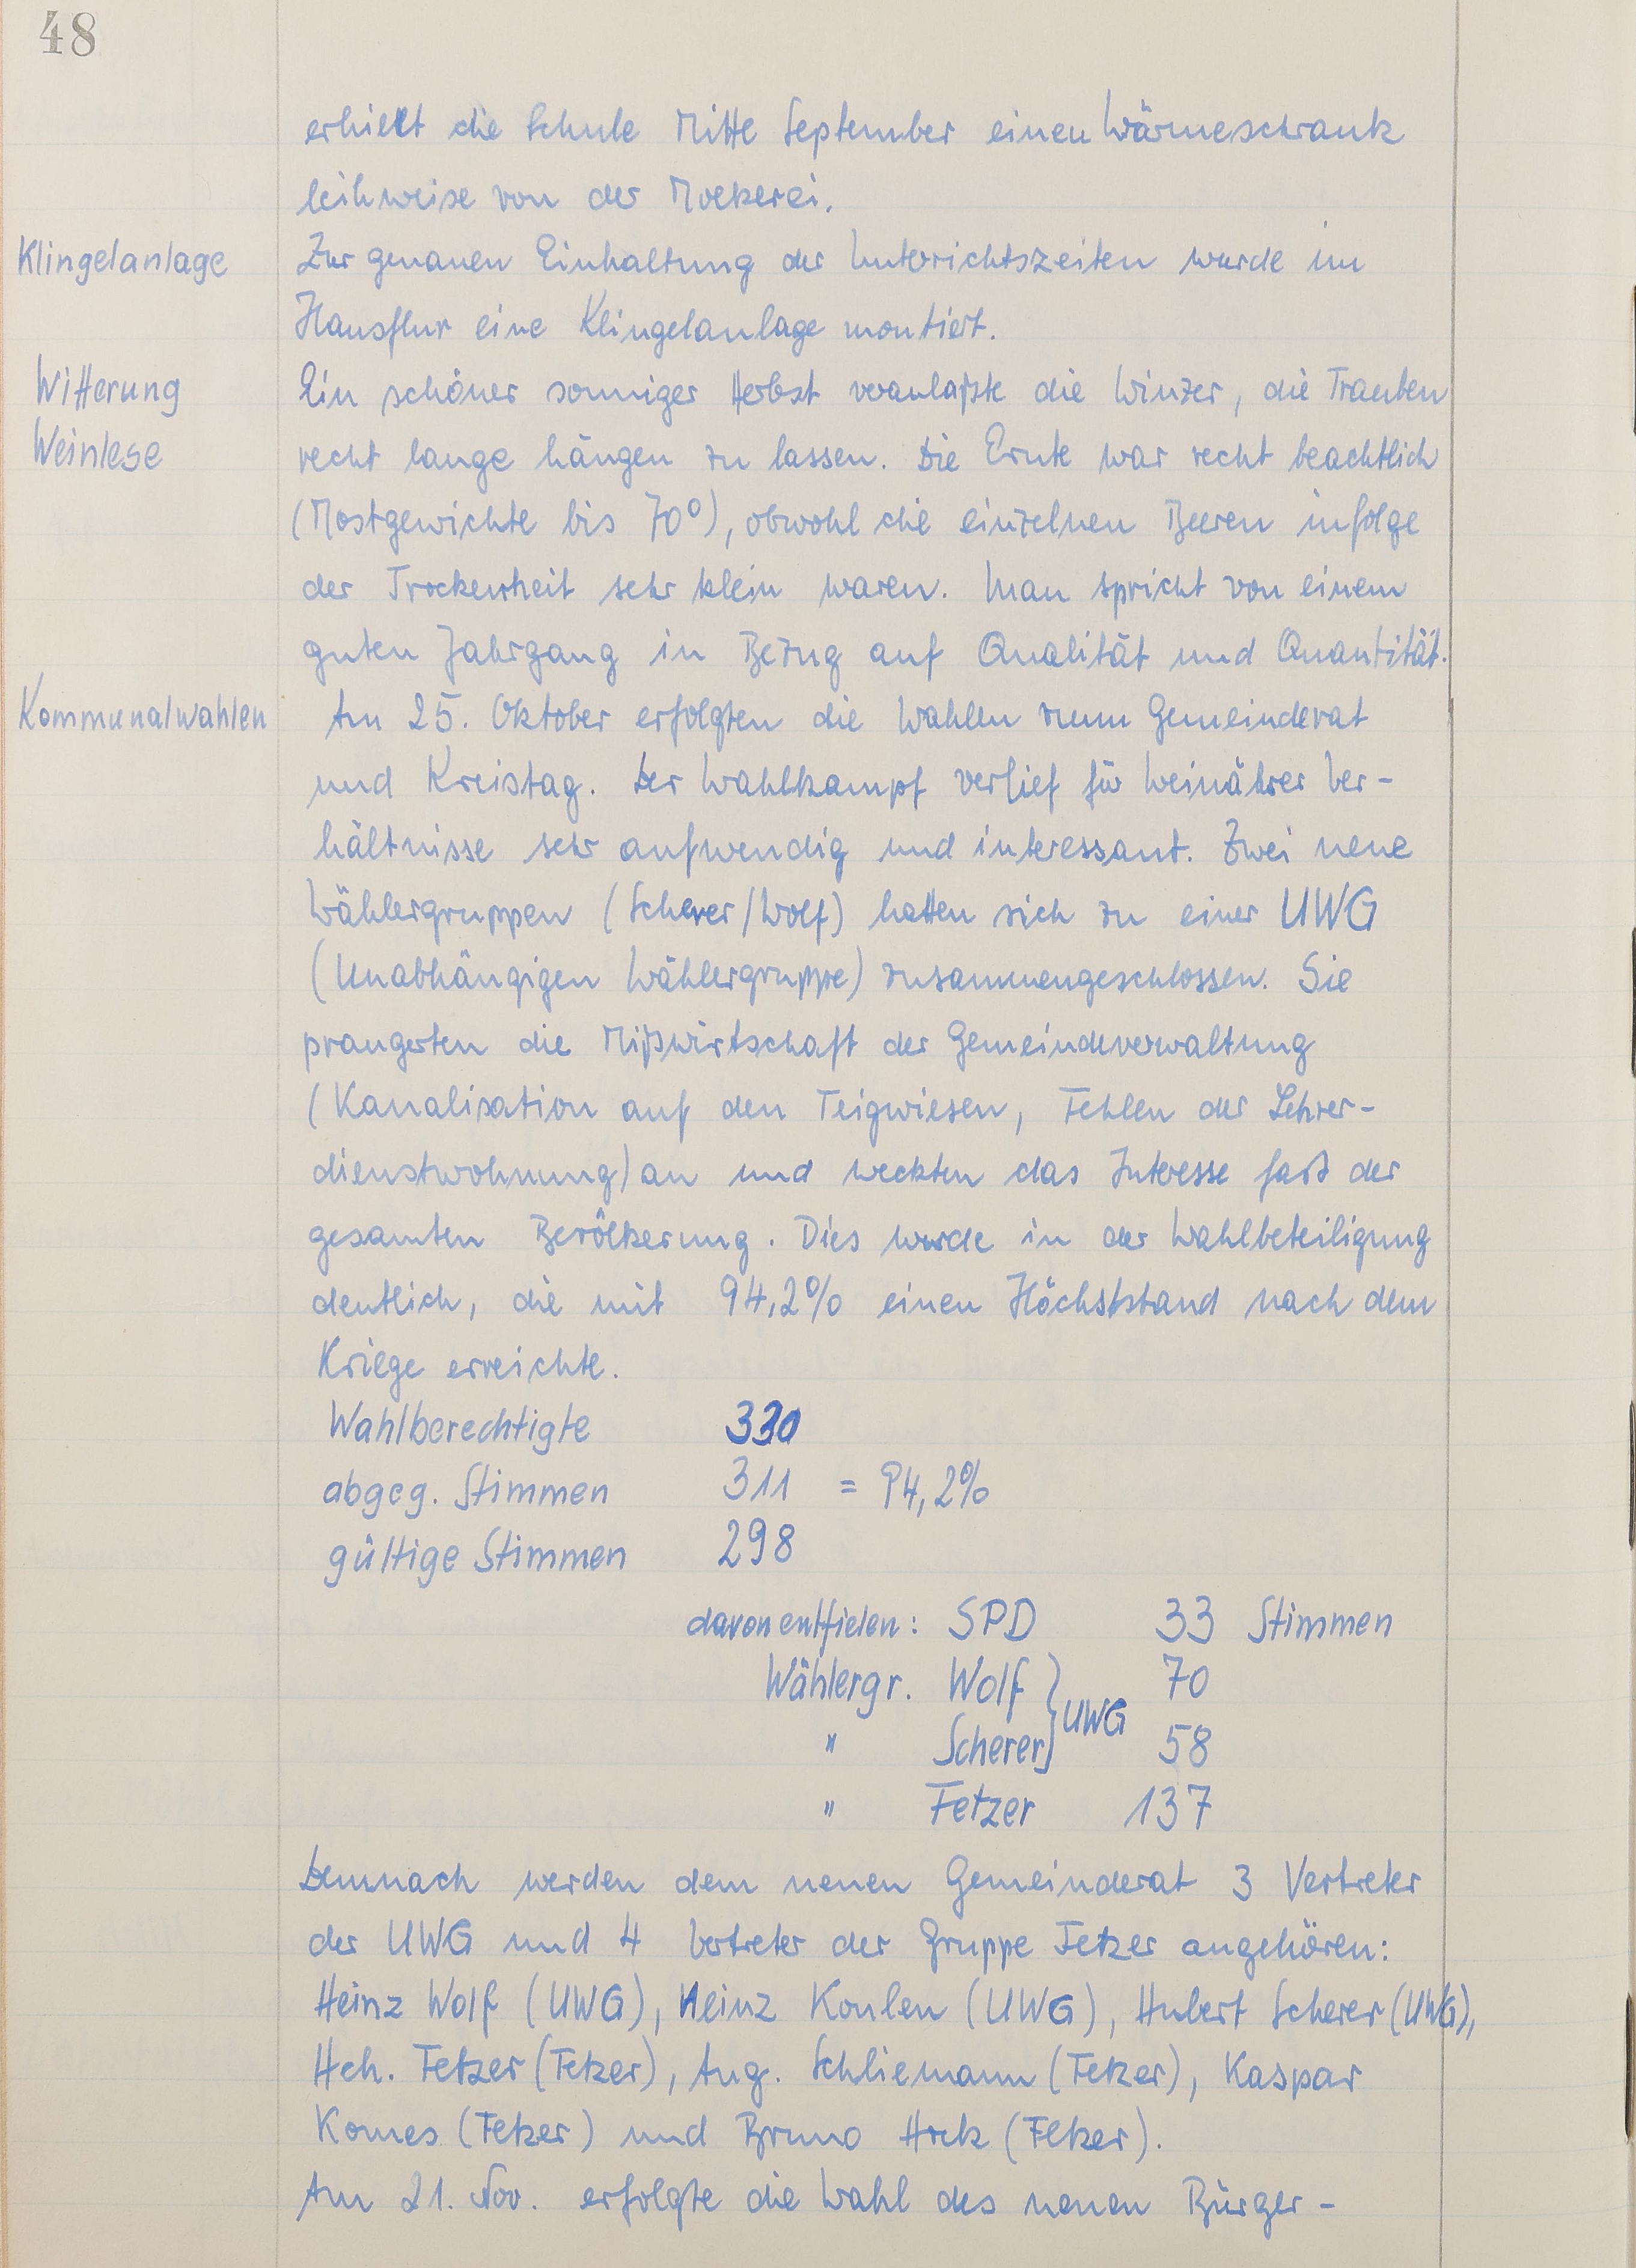 48
erhielt die Schule Mitte September einen Wärmeschrank
leihweise von der Molkerei.
Klingelanlage Zur genauen Einhaltung der Unterrichtszeiten wurde im
Hausflur eine Klingelanlage montiert.
Witterung Ein schöner sonniger Herbst veranlaßte die Winzer, die Trauben
Weinlese recht lange hängen zu lassen. Die Ernte war recht beachtlich
(Mostgewichte bis 70°), obwohl die einzelnen Beeren infolge
der Trockenheit sehr klein waren. Man spricht von einem
guten Jahrgang in Bezug auf Qualität und Quantität.
Kommunalwahlen Am 25. Oktober erfolgten die Wahlen zum Gemeinderat
und Kreistag. Der Wahlkampf verlief für Weinährer Ver-
hältnisse sehr aufwendig und interessant. Zwei neue
Wählergruppen (Scherer/Wolf) hatten sich zu einer UWG
(Unabhängigen Wählergruppe) zusammengeschlossen. Sie
prangerten die Mißwirtschaft der Gemeindeverwaltung
(Kanalisation auf den Teigwiesen, Fehlen der Lehrer-
dienstwohnung) an und weckten das Interesse fast der
gesamten Bevölkerung. Dies wurde in der Wahlbeteiligung
deutlich, die mit 94,2% einen Höchststand nach dem
Kriege erreichte.
Wahlberechtigte 330
abgeg. Stimmen 311 = 94,2%
gültige Stimmen 298
davon entfielen: SPD 33 Stimmen
Wählergr. Wolf } UWG 70
" Scherer } 58
" Fetzer 137
Demnach werden dem neuen Gemeinderat 3 Vertreter
der UWG und 4 Vertreter der Gruppe Fetzer angehören:
Heinz Wolf (UWG), Heinz Koulen (UWG), Hubert Scherer (UWG),
Hch. Fetzer (Fetzer), Aug. Schliemann (Fetzer), Kaspar
Komes (Fetzer) und Bruno Hock (Fetzer).
Am 21. Nov. erfolgte die Wahl des neuen Bürger-